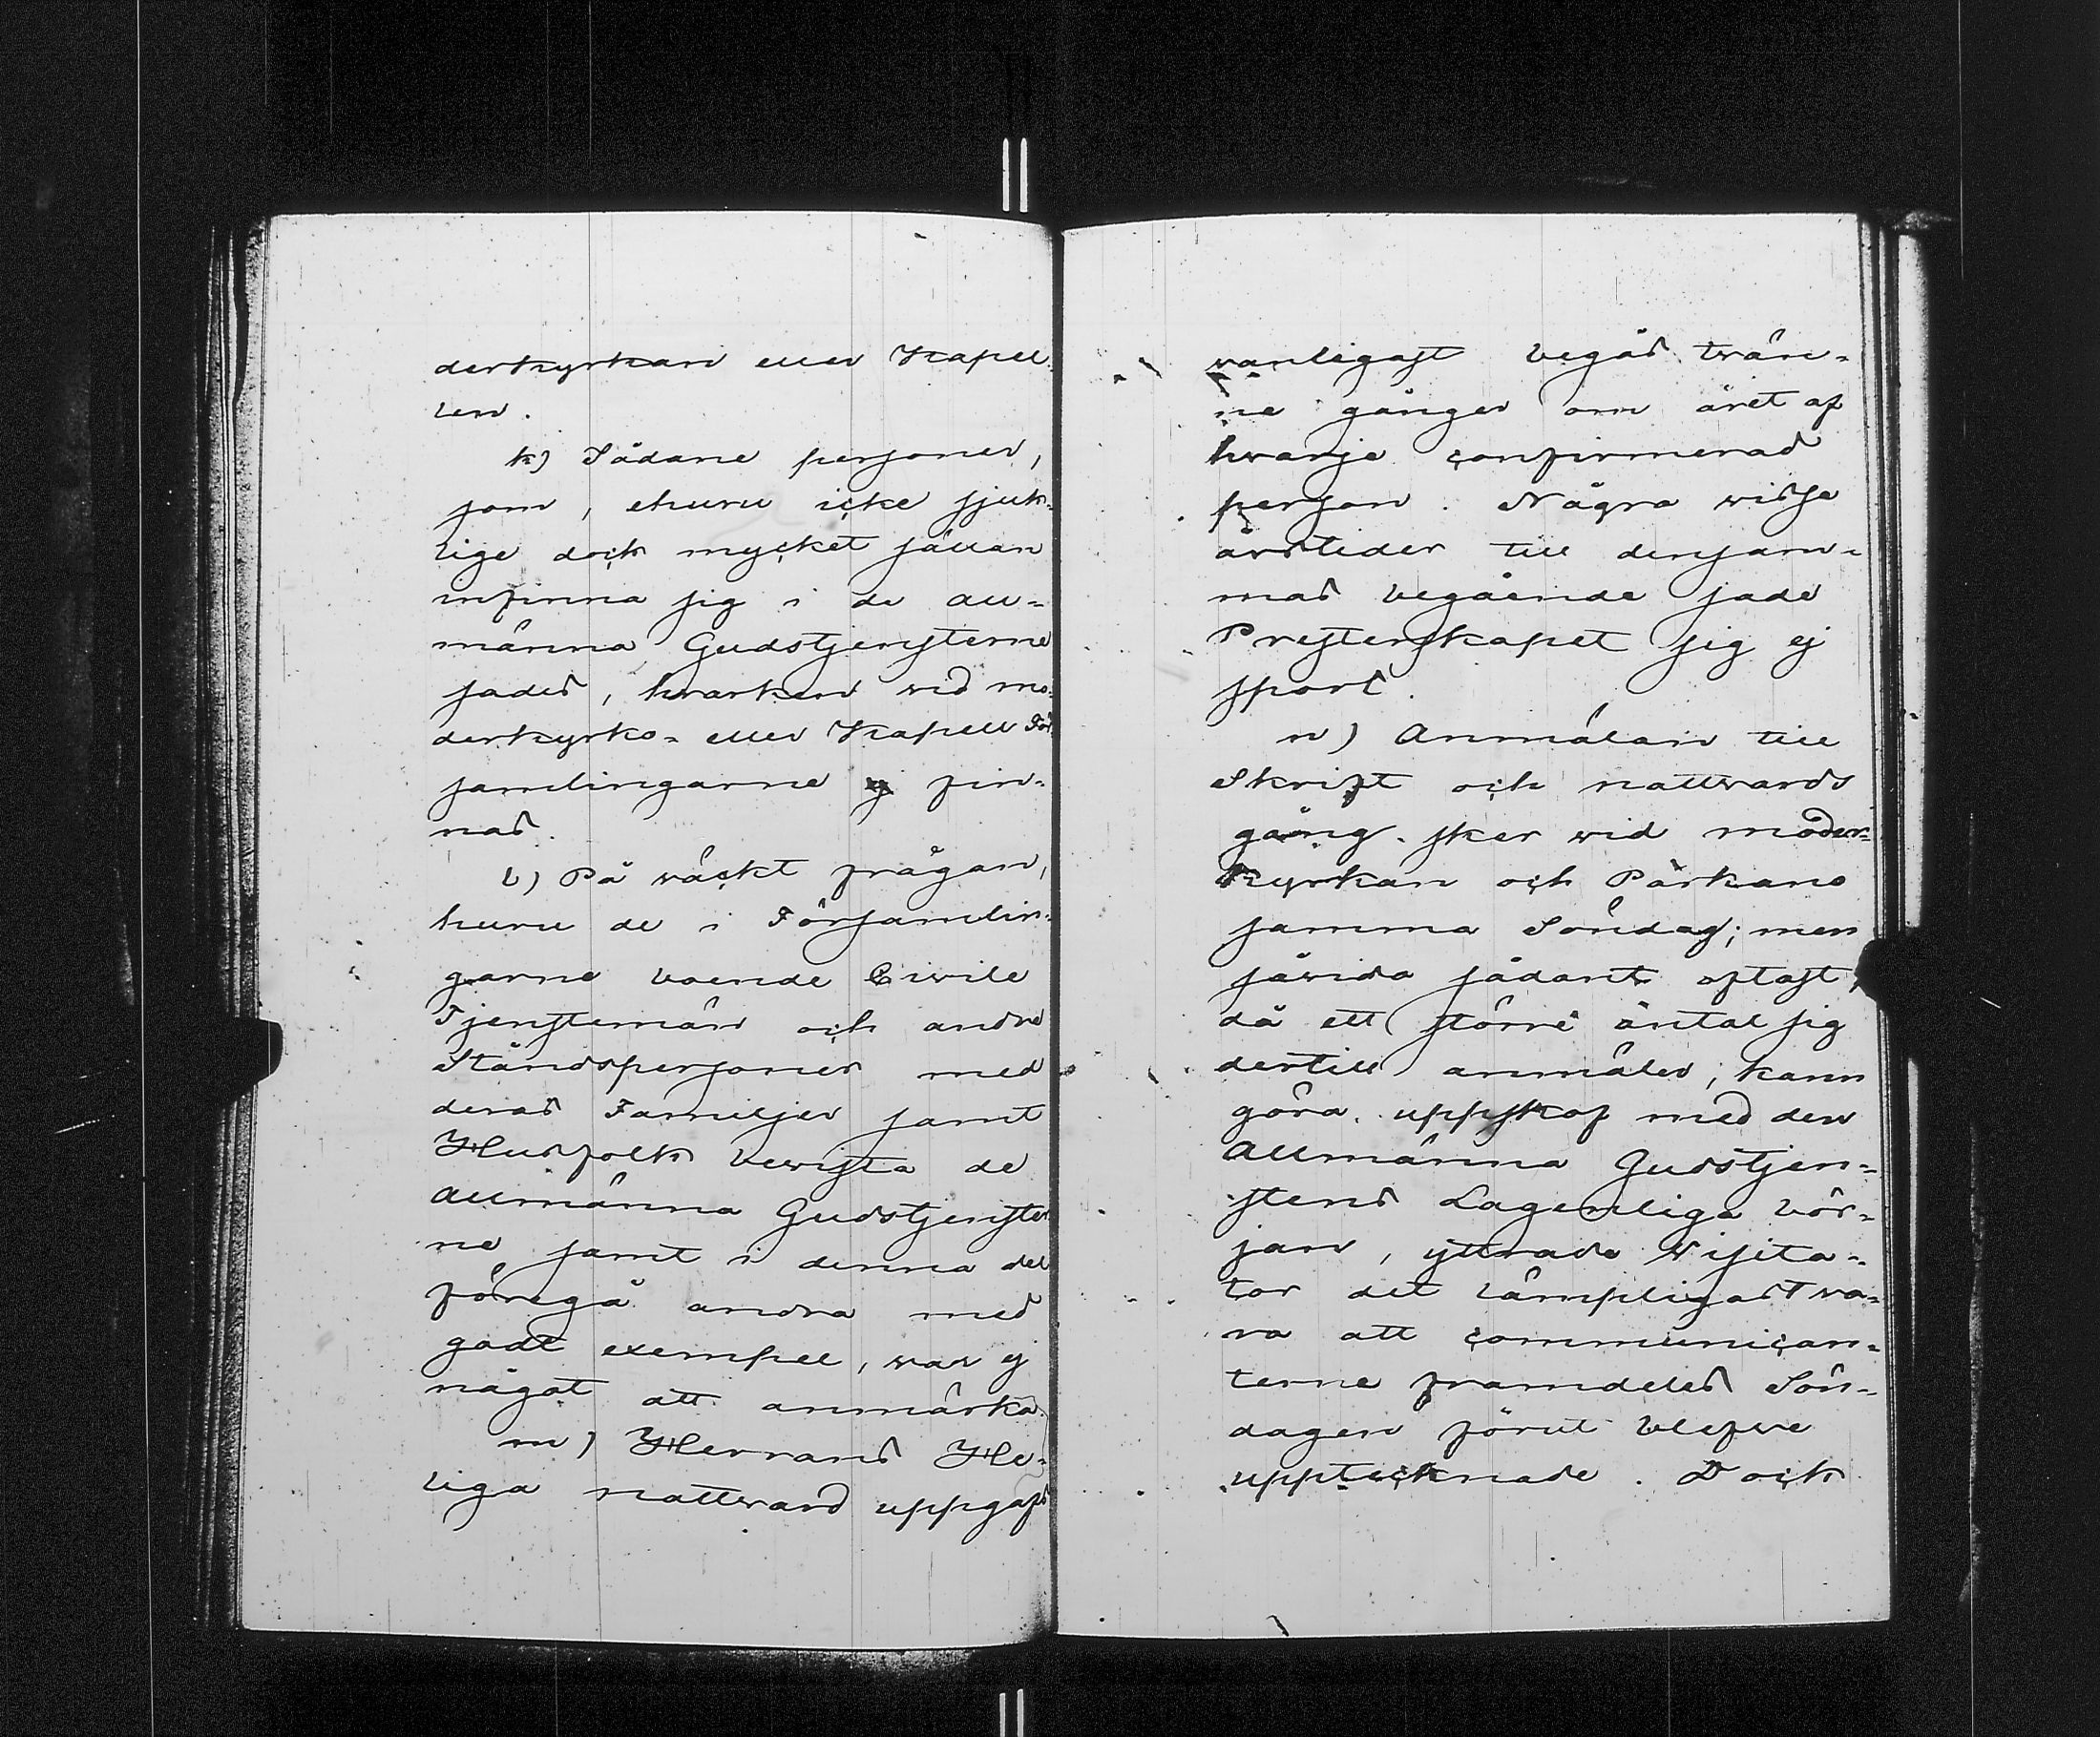 derkyrkan eller Kapel
len.
k) Sådane personer,
som, ehuru icke sjuk-
lige dock mycket sällan
infinna sig i de all-
männa Gudstjensterne
sades, hvarken vid mo-
derkyrko- eller Kapell För
samlingarne ej fin-
nas.
l) På väckt frågan,
huru de i Församlin-
garne boende Civile
Tjenstemän och andre
Ståndspersoner med
deras Familjer samt
Husfolk bevista de
allmänna Gudstjenster
ne samt i denna del
föregå andra med
godt exempel, var ej
något att anmärka.
m) Herrans He-
liga nattvard uppgafs
vanligast begås tvän-
ne gånger om året af
hvarje confirmerad
person. Några vissa
årstider till densam-
mas begående sade
Presterskapet sig ej
sport.
n) Anmälan till
Skrift och nattvards
gång sker vid moder-
kyrkan och Pärkano
samma Söndag; men
såvida sådant oftast,
då ett större antal sig
dertill anmäler, kann
göra uppskof med den
Allmänna Gudstjen-
stens Lagenliga bör-
jan, yttrade Visita-
tor det lämpligast va-
ra att communican-
terne framdeles Sön-
dagen förut blefve
upptecknade. Dock